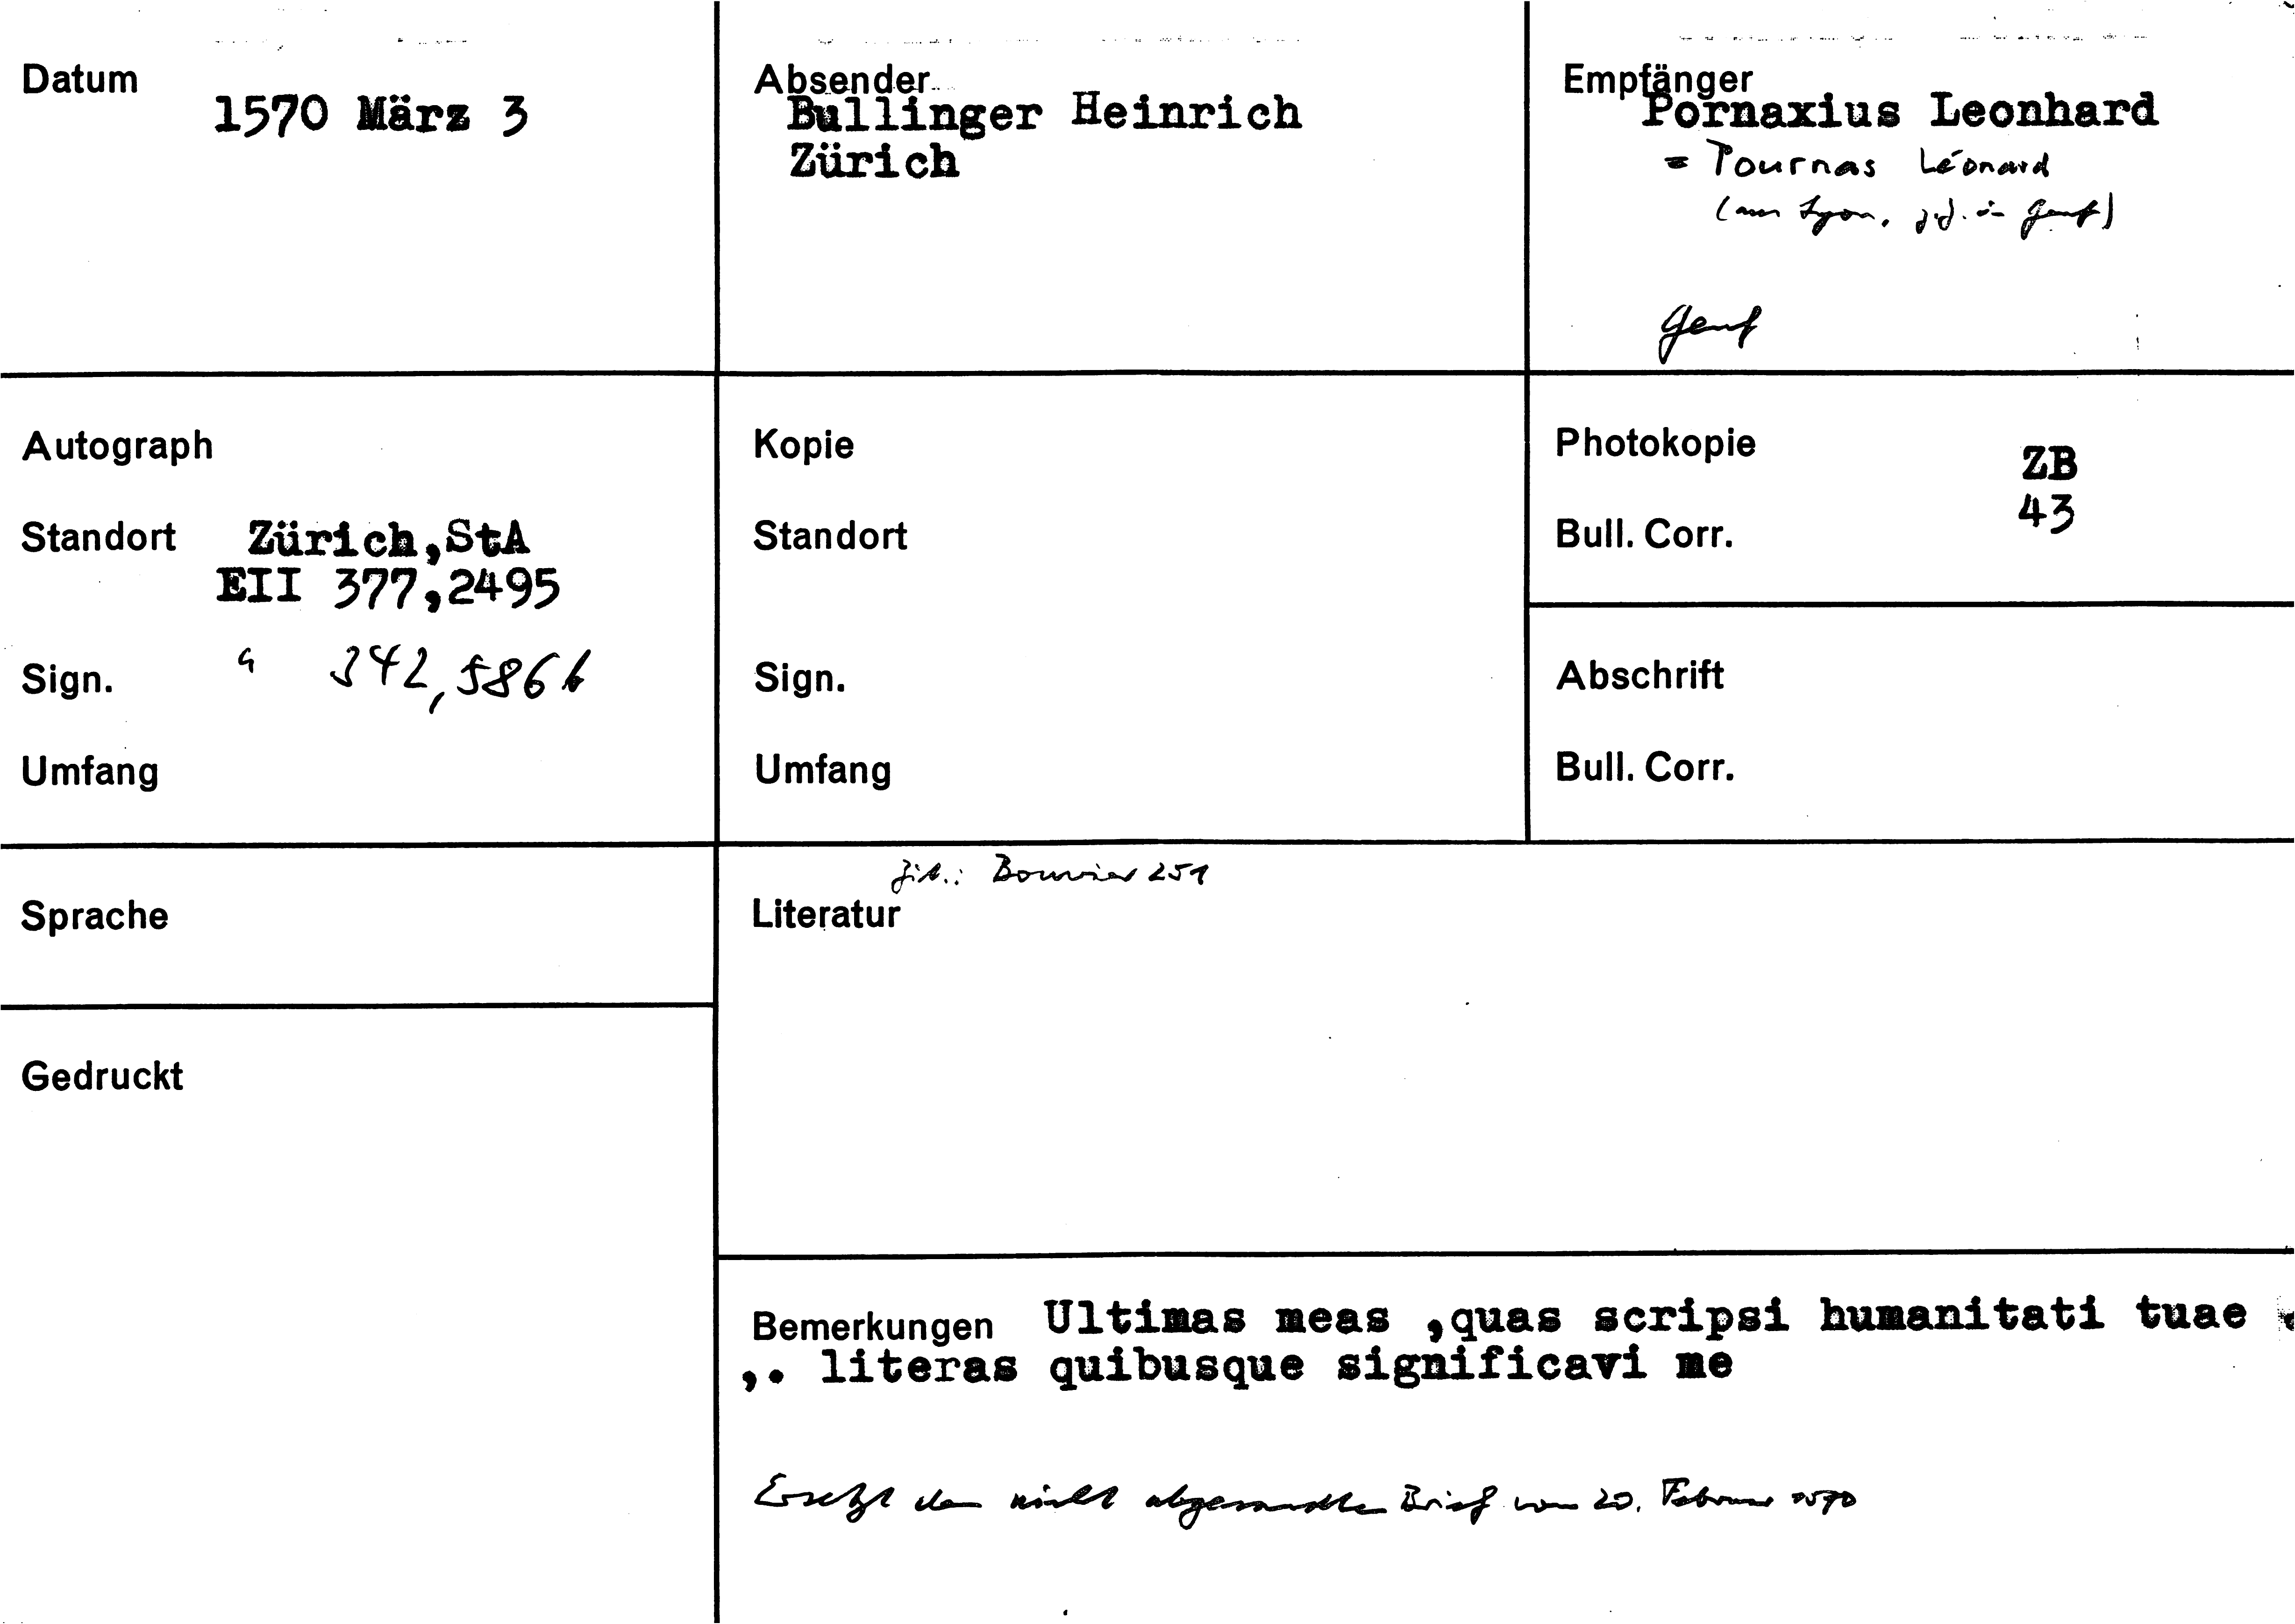 Datum
1570 März 3
Absender
Bullinger Heinrich
Zürich
Empfänger
Pornaxius Leonhard
= Pournas Léonard
(aus Lyon, z.Z. in Genf)
Genf
Autograph
Standort Zürich,StA
EII 377,2495
Sign. " 342,586b
Umfang
Kopie
Standort
Sign.
Umfang
Photokopie ZB
Bull. Corr. 43
Abschrift
Bull. Corr.
Sprache
Gedruckt
Zit.: Bouvier 251
Literatur
Bemerkungen Ultimas meas ,quas scripsi humanitati tuae
,. literas quibusque significavi me
Ersetzt den nicht abgesandten Brief vom 20. Februar 1570